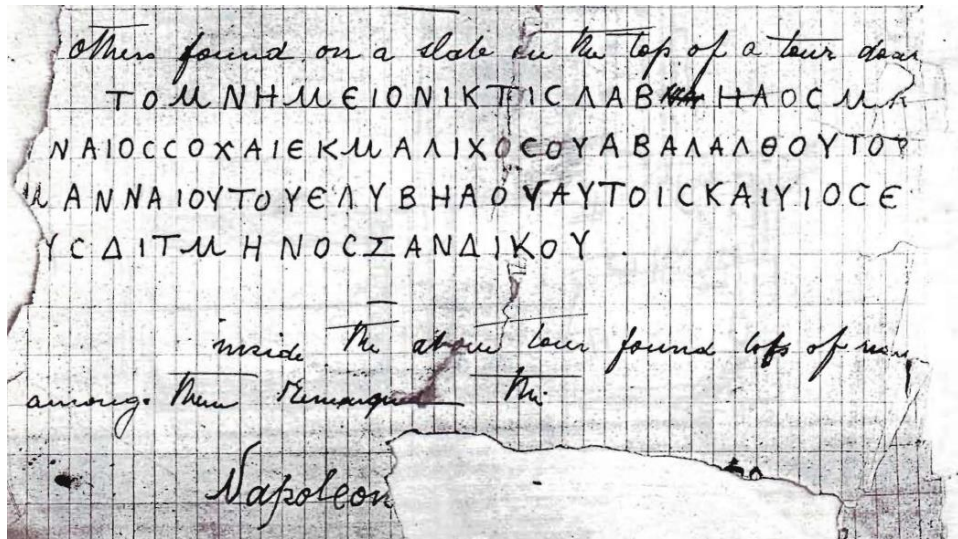 others found on a slab on the top of a tour door
ΤΟΜΝΗΜЄΙΟΝΙΚΤΙCΛΑΒ ΗΑΟCΜΑ
ΝΑΙΟCCΟΧΑΙЄΚΜΑΛΙΧΟCΟΥΑΒΑΛΑΛΘΟΥΤΟΡ
ΜΑΝΝΑΙΟΥΤΟΥЄΛΥΒΗΑΟΥΑΥΤΟΙCΚΑΙΥΙΟCЄ
ΥCΔΙΤΜΗΝΟCΣΑΝΔΙΚΟΥ.
inside the above tour found lots of
among them Remarqued the
Napoleon